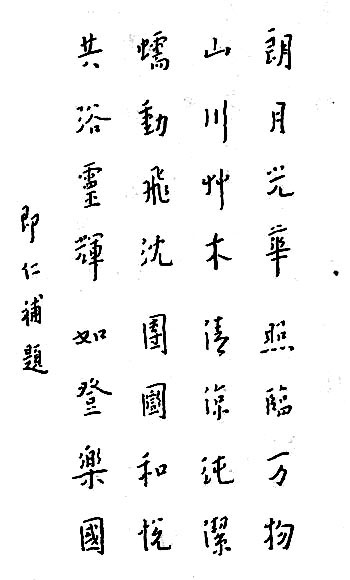 朗月光華 照臨万物
山川艸木 清涼純潔
蠕動飛沈 團圞和悅
共浴靈輝 如登樂國
即仁補題